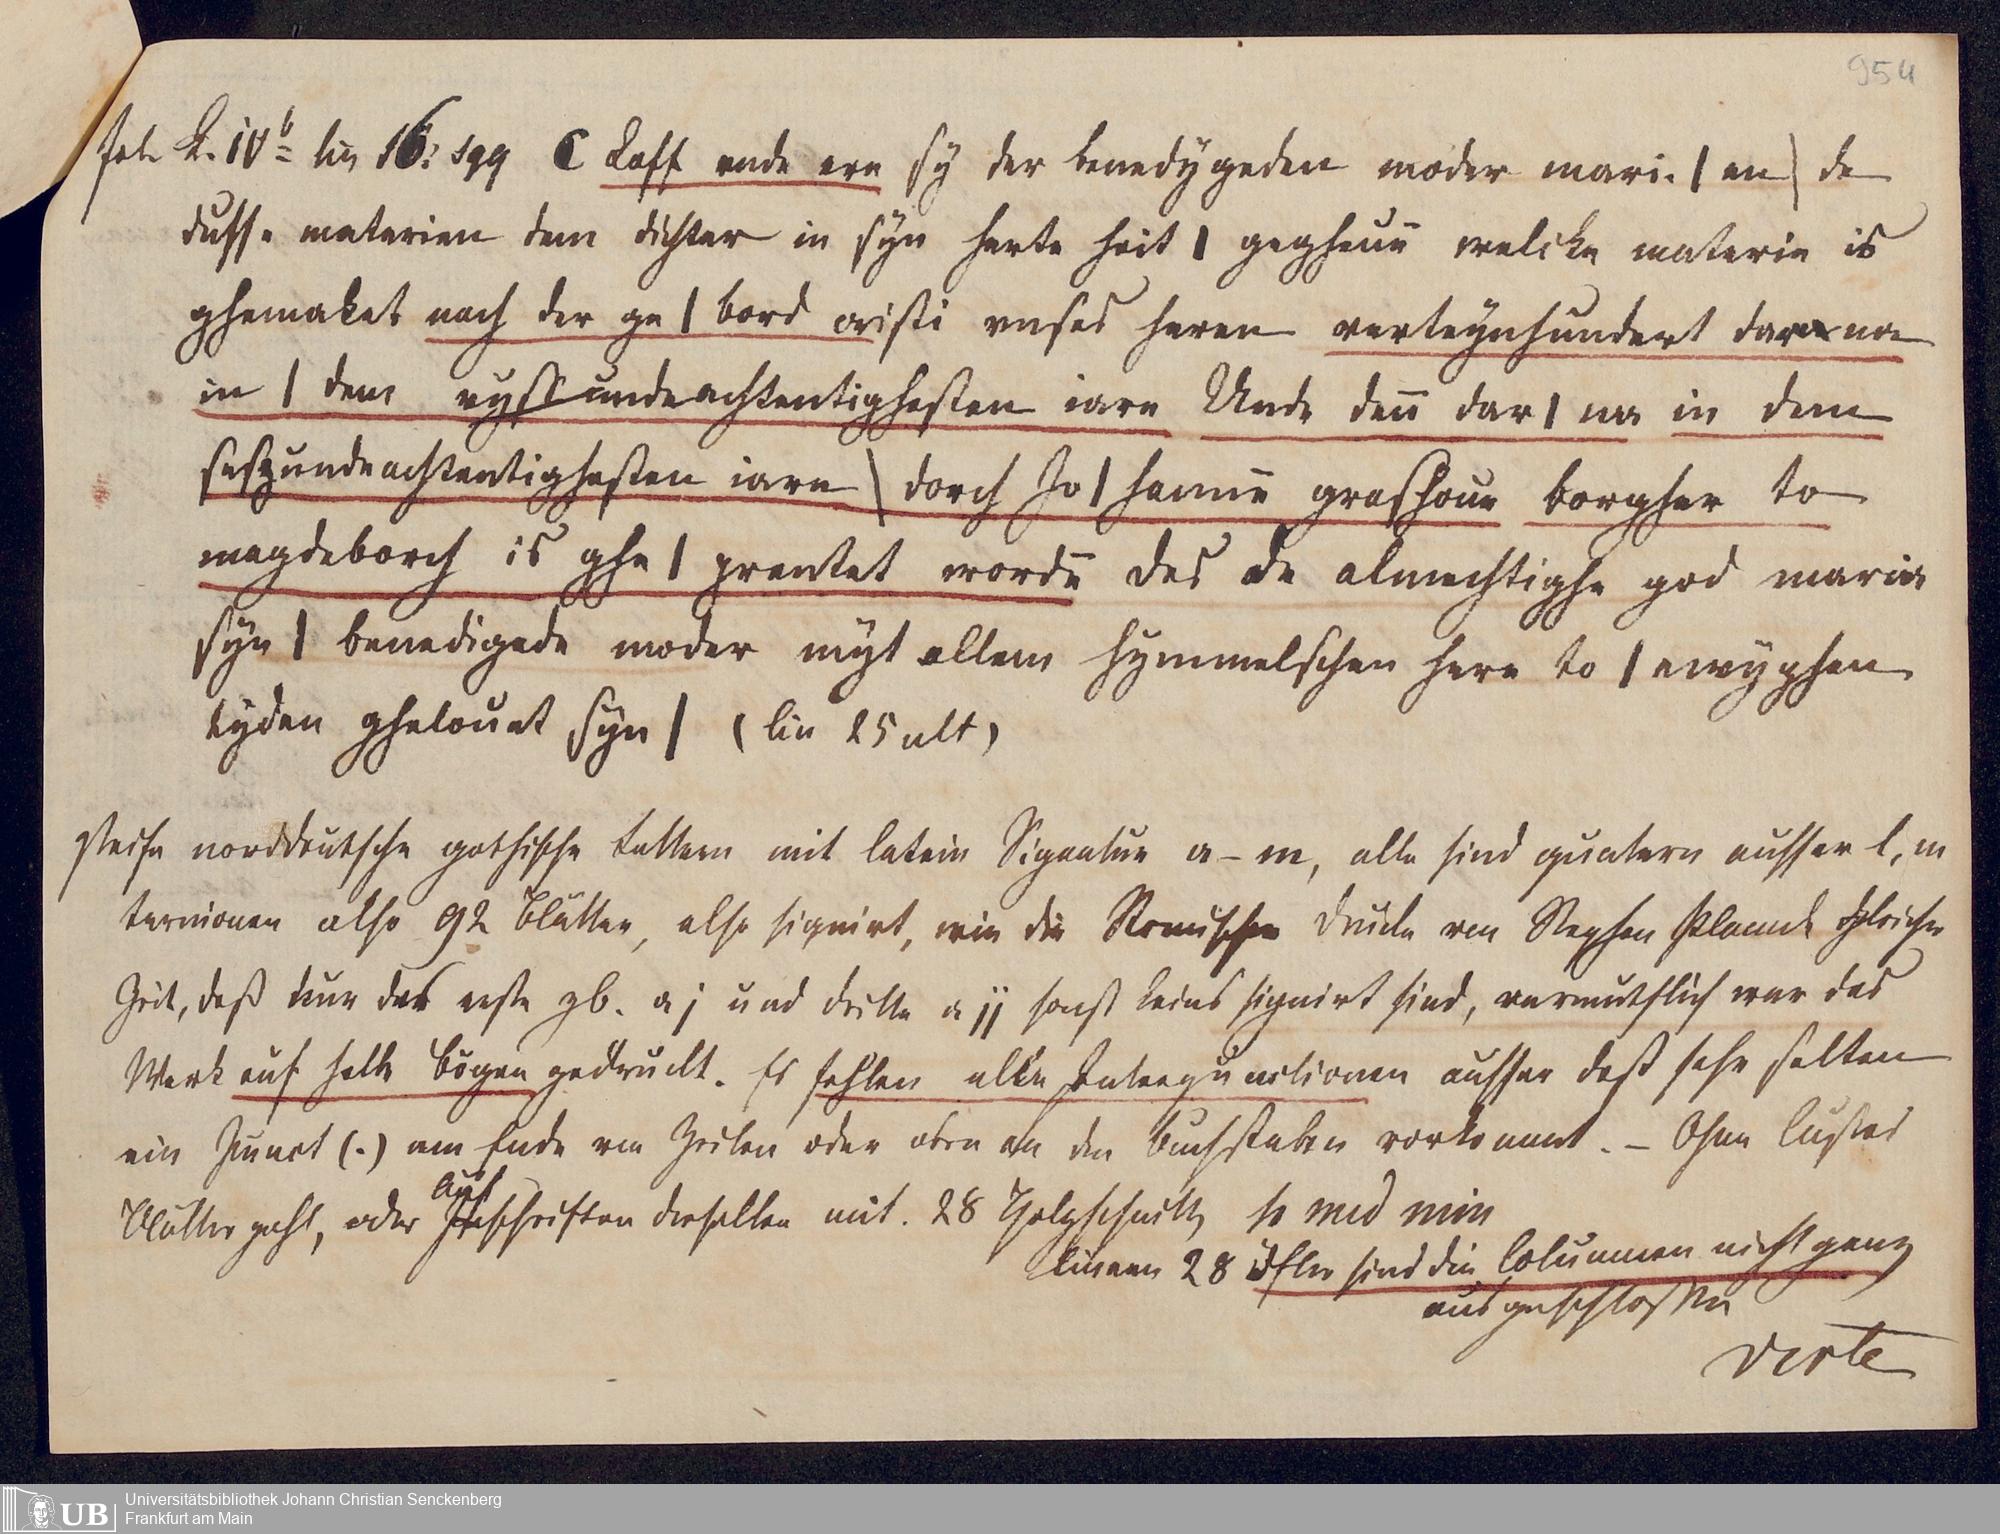 954
fol. L. IV b lin 16. sqq C Loff unde ere sy der benedygeden moder mari- | en | de
dusse materien dem dichter in syn herte heit | gegheuē welcke materie is
ghemaket nach der ge | bord cristi vnses heren verteynhundert dar na
in | dem vyff undeachtentighesten iare Unde deñ dar | na in dem
seszundeachtentighesten iare | dorch Jo | hannē grashoue borgher to
magdeborch is ghe | prentet wordē des de almechtighe god maria
syn | benedigede moder myt allem hymmelschen here to | ewyghen
tyden ghelouet syn | (lin 25 ult)
Steife norddeutsche gothische Lettern mit latein Signatur a – m, alle sind quatern ausser l, m
ternionen also 92 Blätter, also signirt, wie die Roemischen Drucke von Stephan Planck gleicher
Zeit, daß nur das erste zb. a j und dritte a jj sonst keins signirt sind, vermuthlich war das
Werk auf halbe Bögen gedruckt. Es fehlen alle Interpunctionen ausser daß sehr selten
ein Punct (.) am Ende von Zeilen oder oben an den Buchstaben vorkommt. – Ohne Custos
Blätterzahl, oder Aufschriften derselben mit. 28 Holzschnitt
Lineen 28 öfter sind die Columnen nicht ganz
ausgeschlossen
verte
UB Universitätsbibliothek Johann Christian Senckenberg
Frankfurt am Main